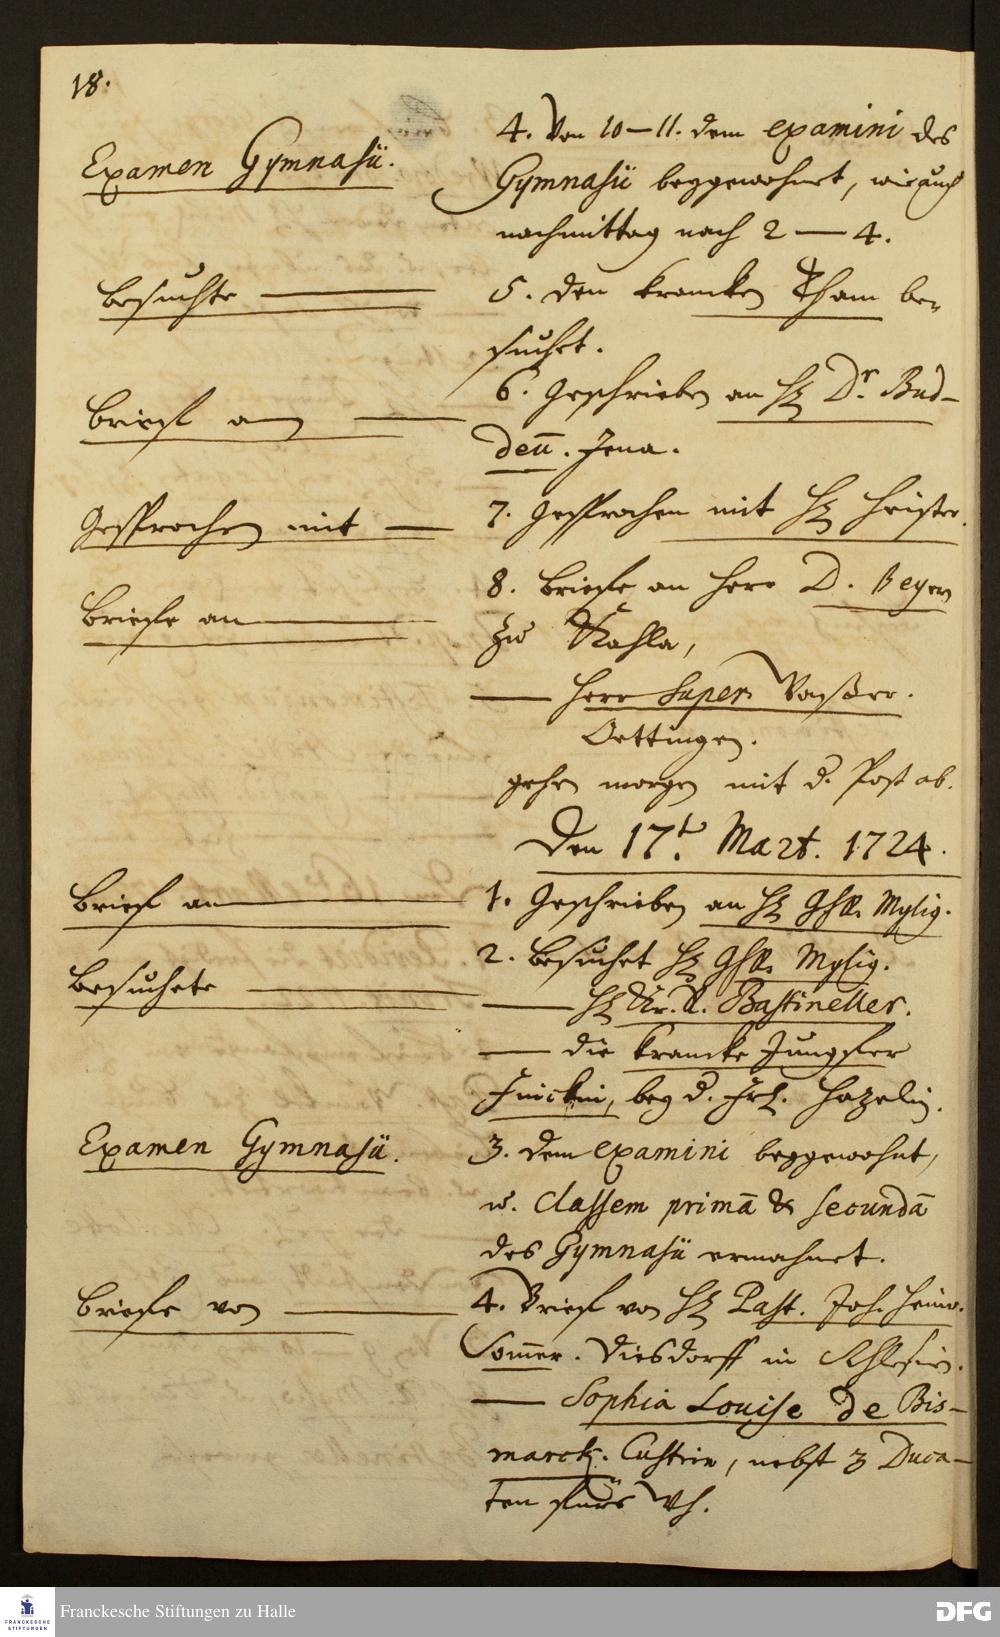 18.
4. Von 10–11. dem examini des
Examen Gymnasii.
Gymnasii beygewohnet, wie auch
nachmittag nach 2 — 4.
Besuchte —
5. den krancken Tham be-
suchet.
6. Geschrieben an H. Dr. Bud-
Brief an —
deũ. Jena.
Gesprochen mit —
7. Gesprochen mit H.
8. Briefe an Herr D. Beyer
Briefe an —
zu Kahla,
— Herr Super.
Oettingen.
gehen morgen mit d. Post ab.
Den 17t. Mart. 1724.
Brief an —
1. Geschrieben an H. Ghlr. Mylig.
2. Besuchet H. Ghlr. Mylig.
Besuchete —
— H. Bastineller.
— die krancke Jungfer
bey d. Frl.
Examen Gymnasii.
3. dem examini beygewohnt,
u. Classem primā & secundā
des Gymnasii ermahnet.
Briefe von —
4. Brief von H. Past. Joh. Heinr.
Som̄er. Diesdorff in Schlesien.
— Sophia Louise de Bis-
marck. Custrin, nebst 3 Duca-
ten fürs Wh.
FRANCKESCHE STIFTUNGEN
Franckesche Stiftungen zu Halle
DFG